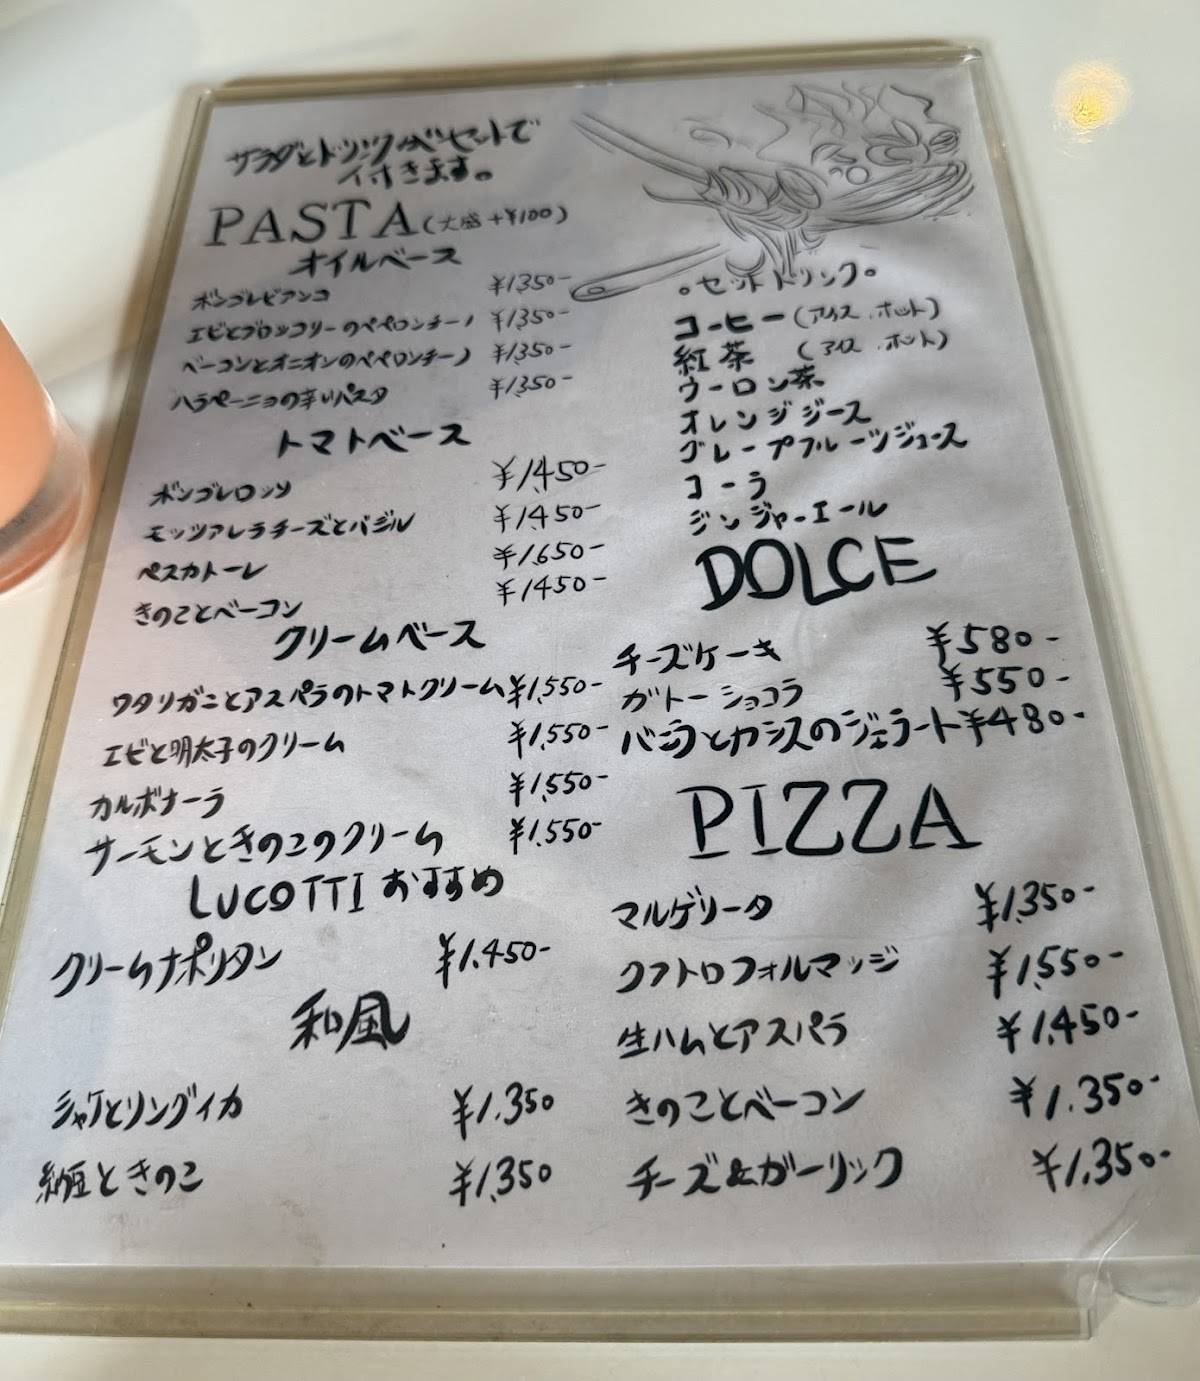 サラダとドリンクがセットで
付きます。
PASTA (大盛 +¥100)
オイルベース
ボンゴレビアンコ ¥1350-
エビとブロッコリーのペペロンチーノ ¥1350-
ベーコンとオニオンのペペロンチーノ ¥1,350-
ハラペーニョの辛いパスタ ¥1,350-
トマトベース
ボンゴレロッソ ¥1,450-
モッツアレラチーズとバジル ¥1,450-
ペスカトーレ ¥1,650-
きのことベーコン ¥1450-
クリームベース
ワタリガニとアスパラのトマトクリーム ¥1,550-
エビと明太子のクリーム ¥1,550-
カルボナーラ ¥1,550-
サーモンときのこのクリーム ¥1,550-
LUCOTTI おすすめ
クリームナポリタン ¥1,450-
和風
シャケとリングイカ ¥1.350
納豆ときのこ ¥1,350
。セットドリンク。
コーヒー (アイス．ホット)
紅茶 (アイス．ホット)
ウーロン茶
オレンジジース
グレープフルーツジュース
コーラ
ジンジャーエール
DOLCE
チーズケーキ ¥580-
ガトーショコラ ¥550-
バニラとカシスのジェラート ¥480-
PIZZA
マルゲリータ ¥1,350-
クアトロフォルマッジ ¥1,550-
生ハムとアスパラ ¥1,450-
きのことベーコン ¥1.350-
チーズ&ガーリック ¥1,350-